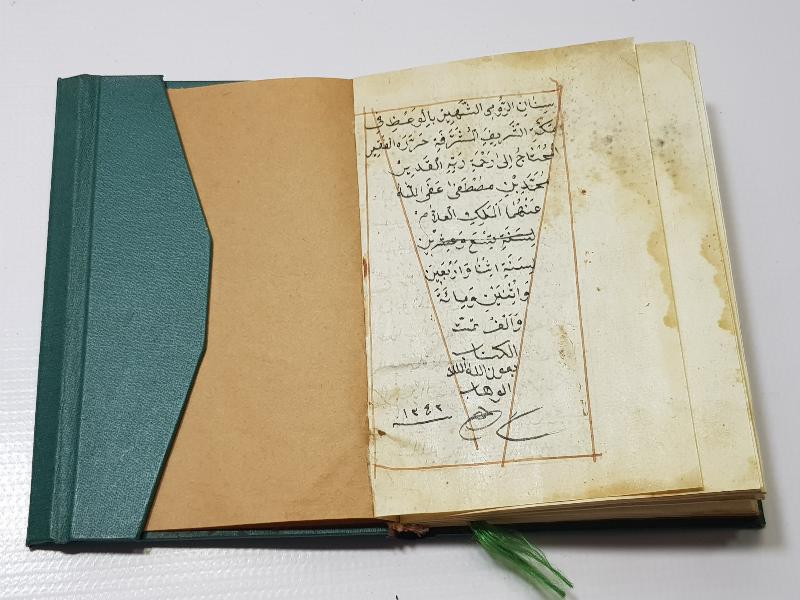 سِنَانِ الرُّومِىِ الشَّهِيرِ بِالْوَعْظِ فِى
مَكَّةَ الشَّرِيفَةِ الْمُشَرَّفَةِ حَرَّرَهُ الْفَقِيرُ
الْمُحْتَاجُ اِلَى رَحْمَةِ رَبِّهِ الْقَدِيرِ
مُحَمَّدُ بْنِ مُصْطَفَى عَفَى اللّٰهُ
عَنْهُمَا الْمَلِكِ الْعَلَّام
لِسَنَةِ تِسْعَ وَعِشْرِين
لِسَنَةِ اثْنَا وَارْبَعِينَ
وَاثْنَيْنِ وَمِائَةَ
وَالَفْ تمّت
الكتاب
بعون الله الملك
الوهاب
١٢٤٢